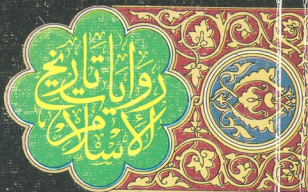 روايات تاريخ
الإسلام